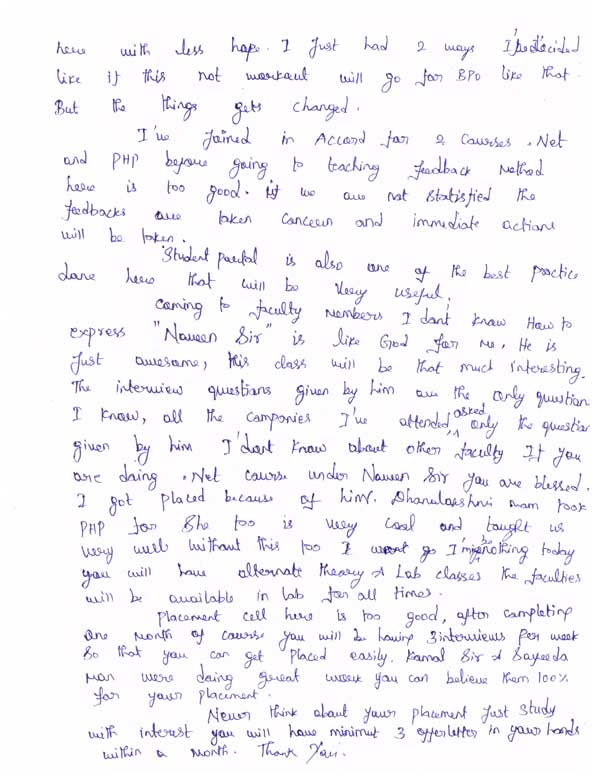 here with less hope. I Just had 2 ways I've decided
like if this not workout will go for BPO like that.
But the things gets changed.
I've Joined in Accord for 2 Courses .Net
and PHP before going to teaching feedback Method
here is too good. If we are not Statisfied the
feedbacks are taken Concern and immediate actions
will be taken.
Student portal is also one of the best practice
done here that will be Very useful,
Coming to faculty Members I don't know How to
express "Naveen Sir" is like God for me. He is
Just awesome, this class will be that much Interesting.
The interview questions given by him are the only question
I know, all the Companies I've attended, asked only the question
given by him I'dont know about other faculty If you
are doing .Net Course under Naveen Sir you are blessed.
I got placed because of him. Dhanalakshmi mam took
PHP for She too is very Cool and taught us
very well without this too I go I'm nothing today
you will have alternate theory & Lab classes the faculties
will be available in Lab for all times.
Placement cell here is too good, after completing
one Month of Course you will be having 3 interviews per week
So that you can get placed easily. Kamal Sir & Sayeeda
Mam were doing great work you can believe them 100%
for your placement.
Never think about your placement Just Study
with interest you will have minimum 3 offerletter in your hands
within a Month. Thank You.